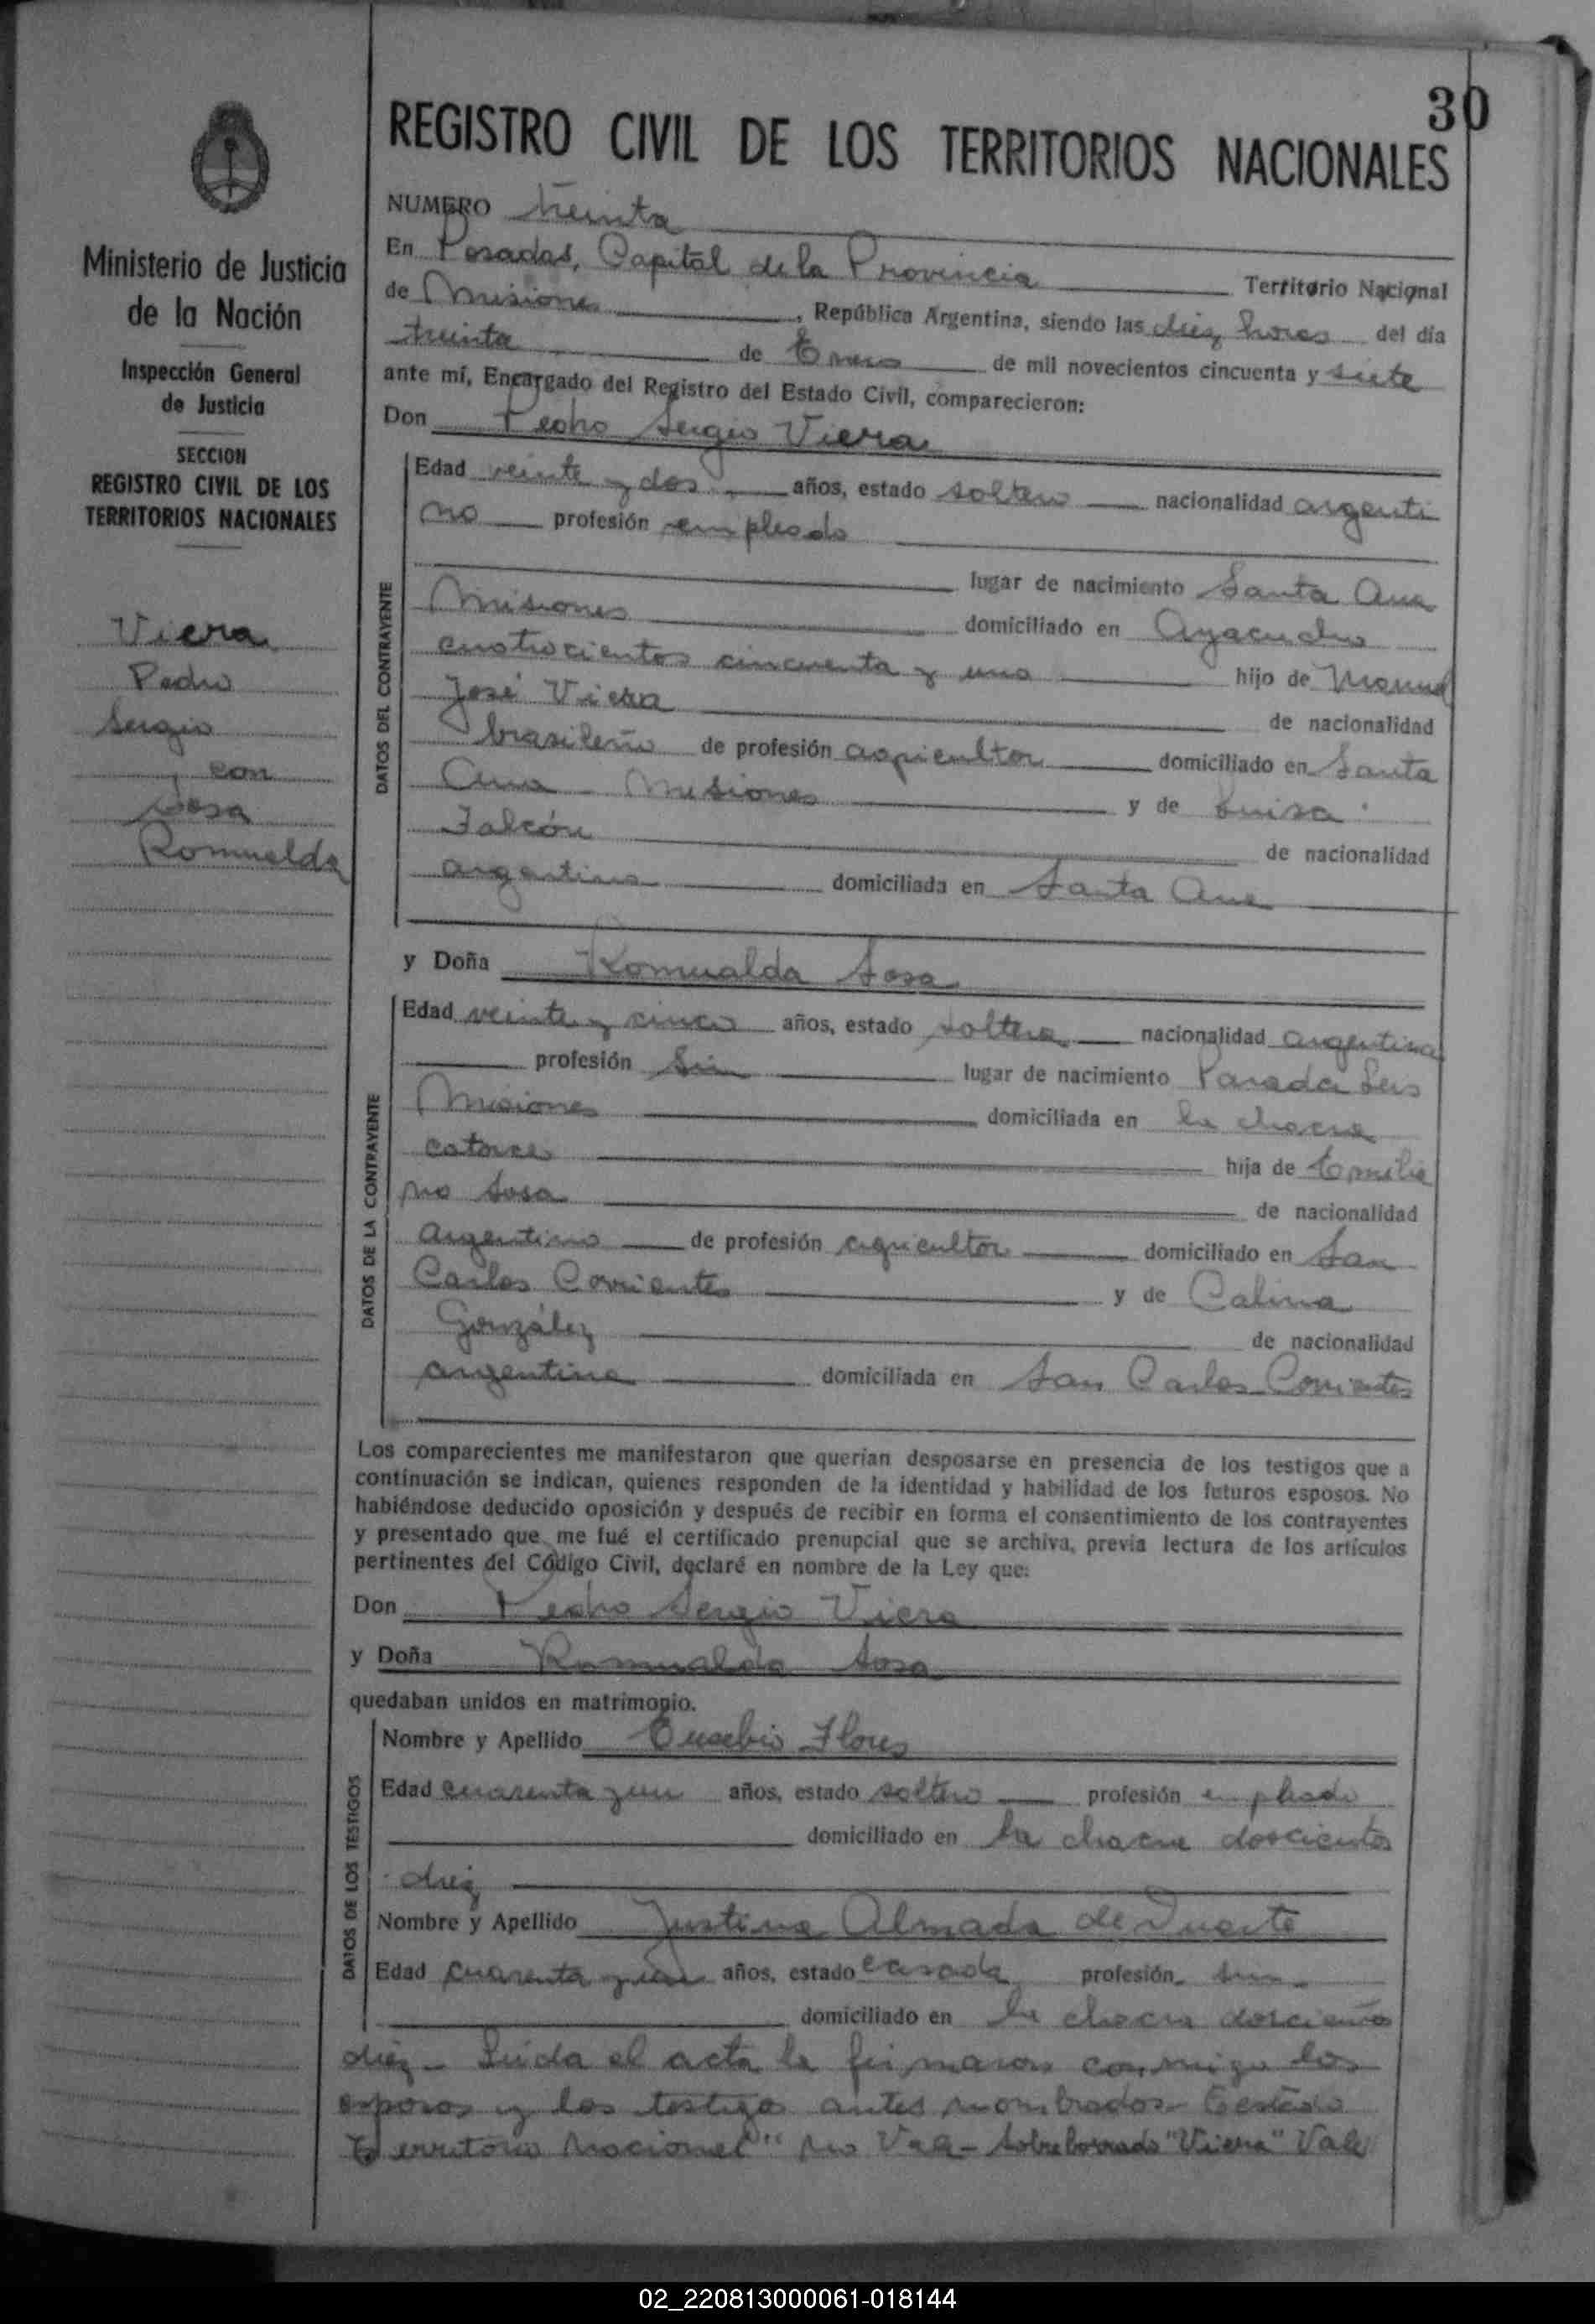 30
REGISTRO CIVIL DE LOS TERRITORIOS NACIONALES
Ministerio de Justicia
de la Nación
Inspección General
de Justicia
SECCION
REGISTRO CIVIL DE LOS
TERRITORIOS NACIONALES
Viera
Pedro
Sergio
y con
Sosa
Romualda
NUMERO treinta
En Posadas, Capital de la Provincia Territorio Nacional
de Misiones, República Argentina, siendo las diez horas del día
treinta de Enero de mil novecientos cincuenta y siete
ante mí, Encargado del Registro del Estado Civil, comparecieron:
Don Pedro Sergio Viera
DATOS DEL CONTRAYENTE
Edad veinte y dos años, estado soltero nacionalidad argenti
no profesión empleado
lugar de nacimiento Santa Ana
Misiones domiciliado en Ayacucho
cuatrocientos cincuenta y uno hijo de Manuel
José Viera de nacionalidad
brasileño de profesión agricultor domiciliado en Santa
Ana - Misiones y de Luisa
Falcón de nacionalidad
argentina domiciliada en Santa Ana
y Doña Romualda Sosa
DATOS DE LA CONTRAYENTE
Edad veinte y cinco años, estado soltera nacionalidad argentina
profesión Sin lugar de nacimiento Parada Leis
Misiones domiciliada en la chacra
catorce hija de Emilia
no Sosa de nacionalidad
argentino de profesión agricultor domiciliado en San
Carlos Corrientes y de Calina
González de nacionalidad
argentina domiciliada en San Carlos Corrientes
Los comparecientes me manifestaron que querían desposarse en presencia de los testigos que a
continuación se indican, quienes responden de la identidad y habilidad de los futuros esposos. No
habiéndose deducido oposición y después de recibir en forma el consentimiento de los contrayentes
y presentado que me fué el certificado prenupcial que se archiva, previa lectura de los artículos
pertinentes del Código Civil, declaré en nombre de la Ley que:
Don Pedro Sergio Viera
y Doña Romualda Sosa
quedaban unidos en matrimonio.
DATOS DE LOS TESTIGOS
Nombre y Apellido Eusebio Flores
Edad cuarenta y un años, estado soltero profesión empleado
domiciliado en la chacra doscientos
diez
Nombre y Apellido Justina Almada de Duarte
Edad cuarenta y un años, estado casada profesión sin
domiciliado en la chacra doscientos
diez - Leida el acta la firmaron conmigo los
esposos y los testigos antes nombrados - Testado
"Territorio Nacional" No Vale - Sobreborrado "Viera" Vale
02_220813000061-018144